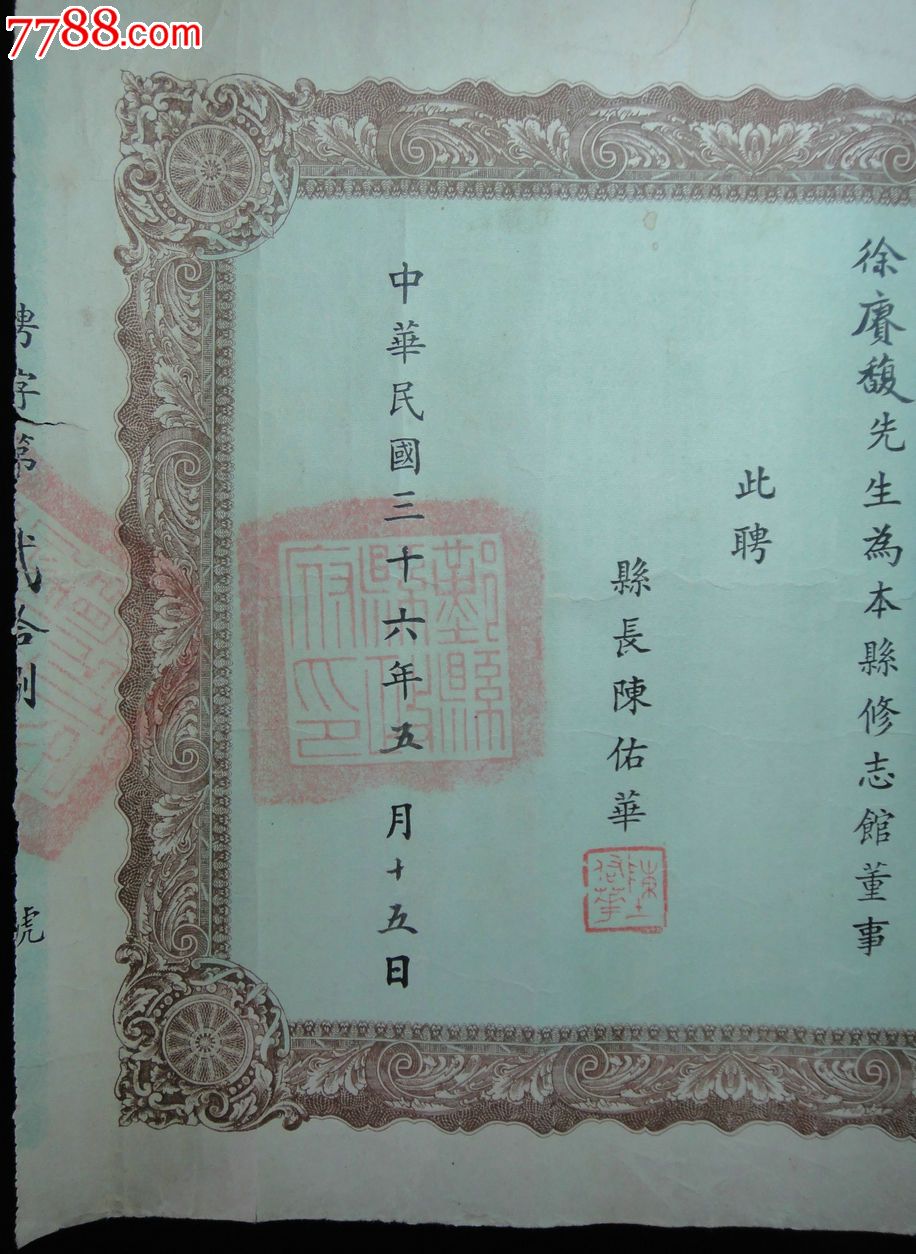 7788.com
徐賡馥先生為本縣修志館董事
此聘
縣長陳佑華
陳佑華
中華民國三十六年五月十五日
鄞縣縣政府印
聘字第貳拾捌號